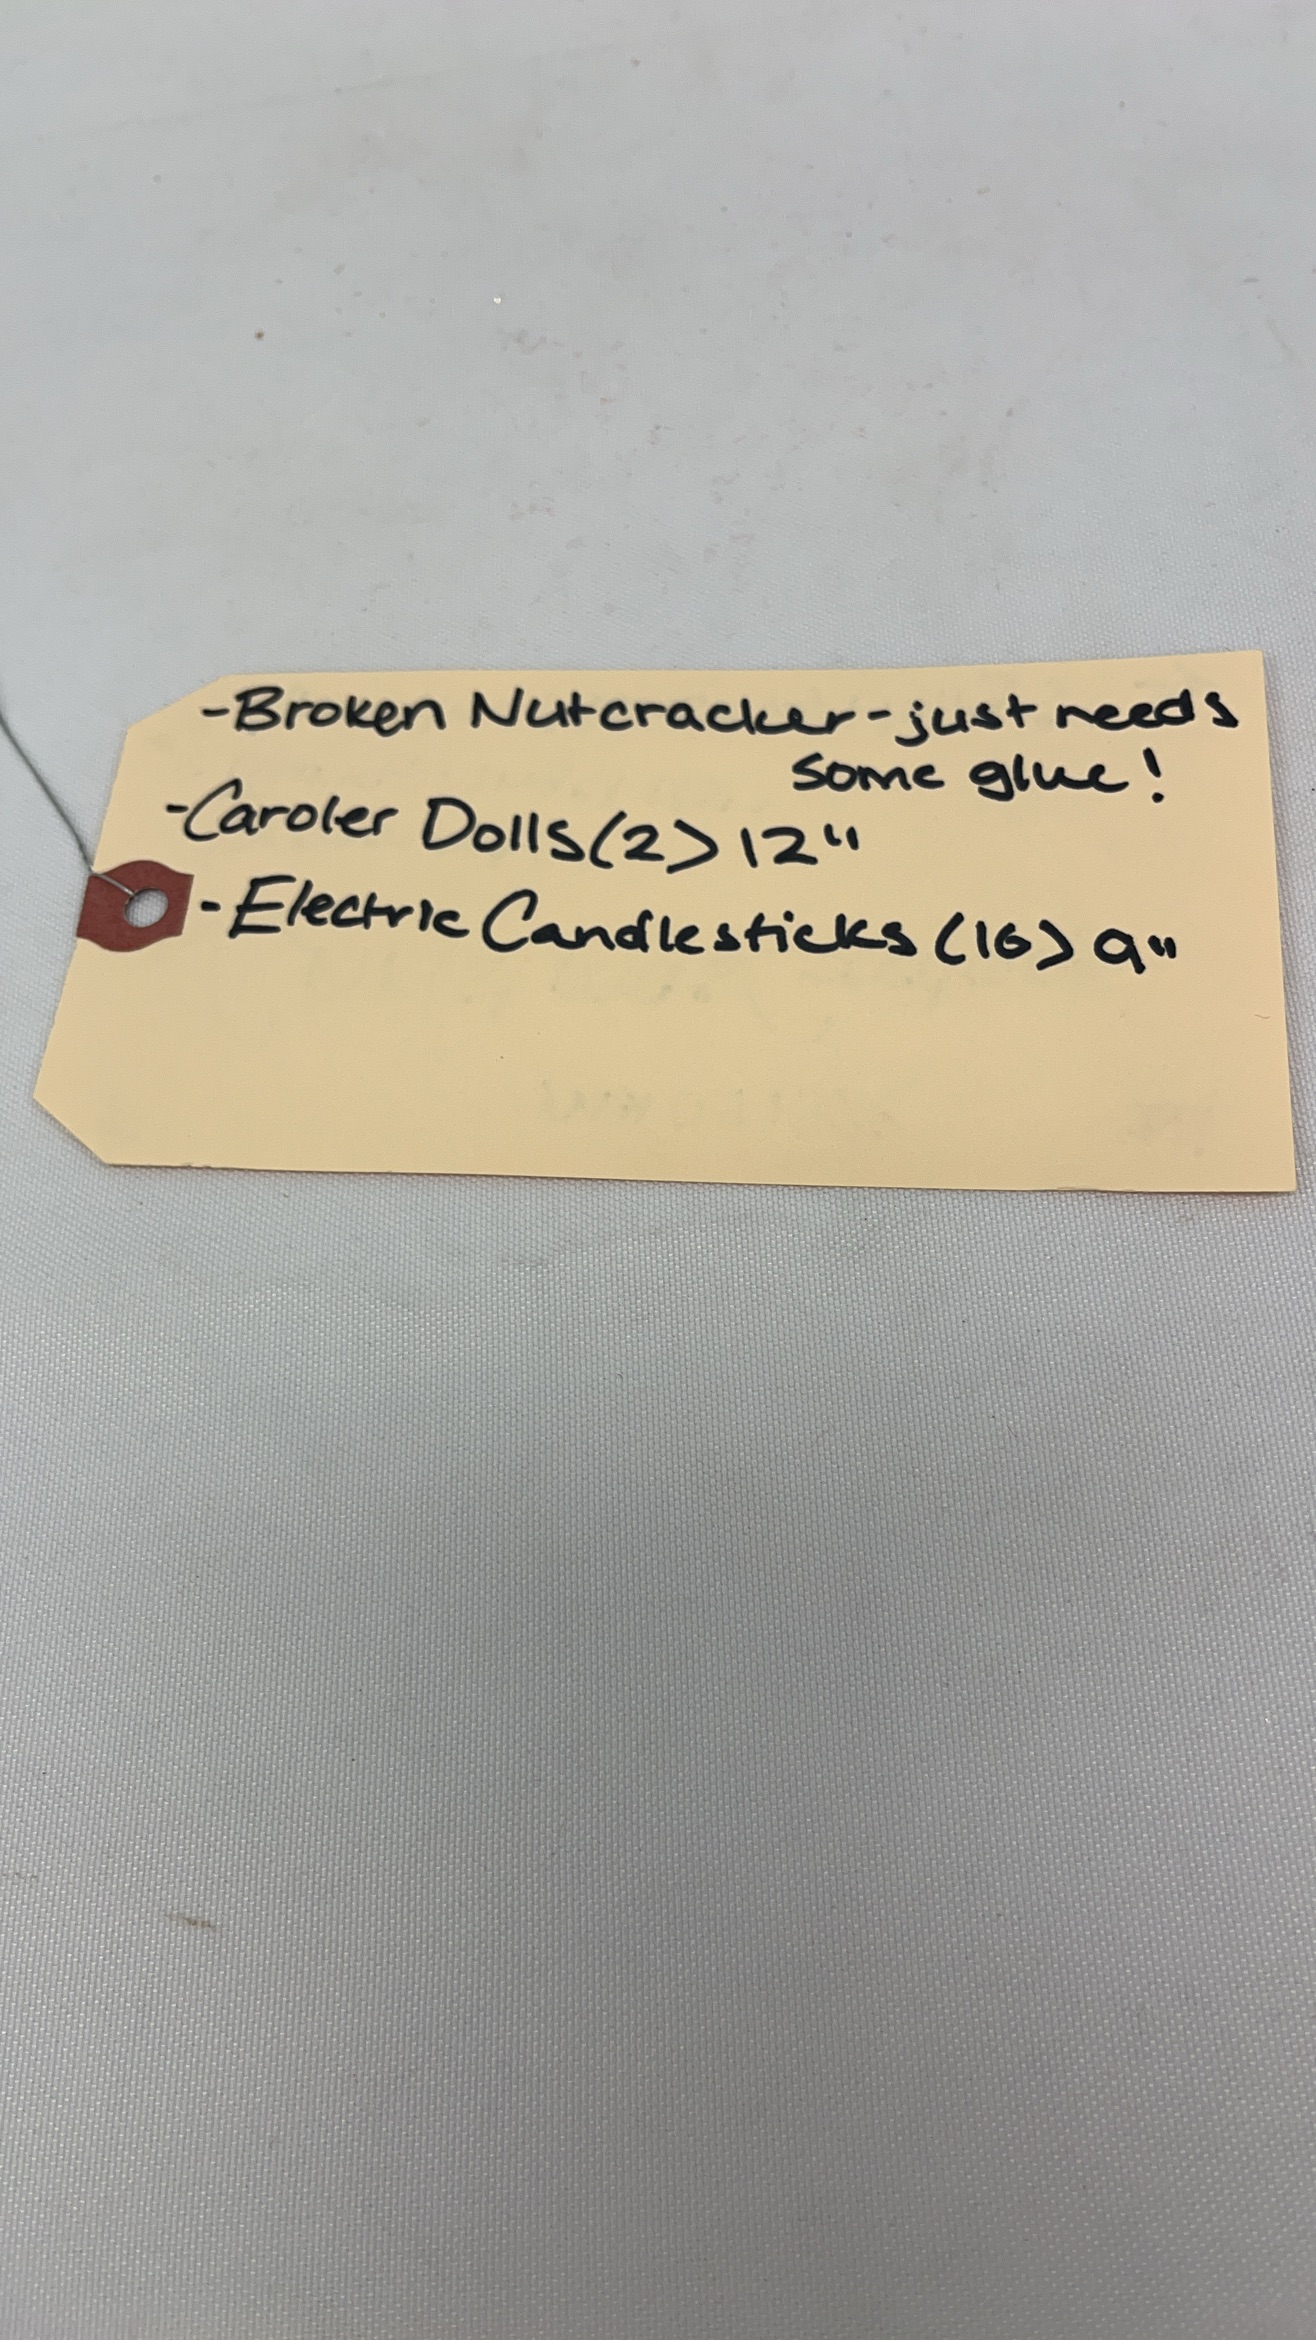 -Broken Nutcracker-just needs
some glue!
-Caroler Dolls(2) 12"
-Electric Candlesticks (16) 9"